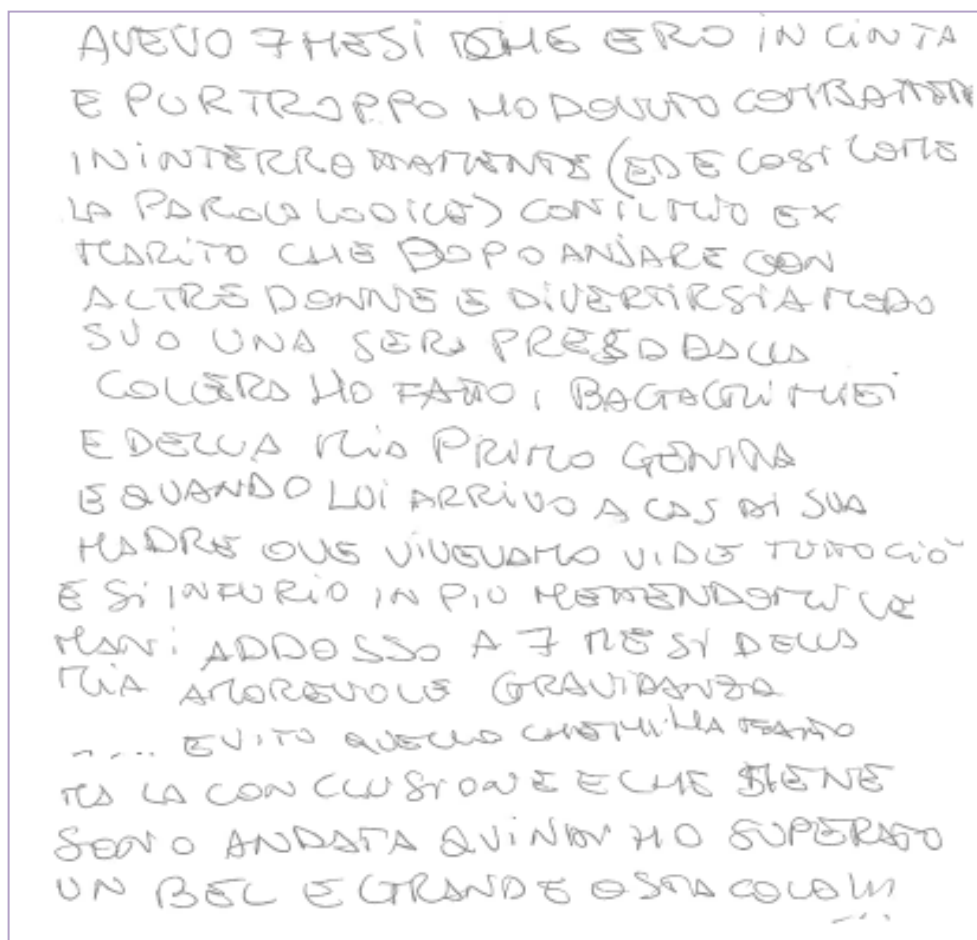 AVEVO 7 MESI CHE ERO IN CINTA
E PURTROPPO HO DOVUTO COMBATTERE
ININTERROTTAMENTE (ED E COSI COME
LA PAROLA LO DICE) CON IL MIO EX
MARITO CHE DOPO ANDARE CON
ALTRE DONNE E DIVERTIRSI A MODO
SUO UNA SERA PRESA DALLA
COLLERA HO FATTO I BAGAGLI MIEI
E DELLA MIA PRIMO GENITA
E QUANDO LUI ARRIVO A CAS DI SUA
MADRE OVE VIVEVAMO VIDE TUTTO CIÒ
E SI INFURIO IN PIU METTENDOMI LE
MANI ADDOSSO A 7 MESI DELLA
MIA AMOREVOLE GRAVIDANZA
..... EVITO QUELLO CHE MI HA FATTO
MA LA CONCLUSIONE E CHE BENE
SONO ANDATA QUINDI HO SUPERATO
UN BEL E GRANDE OSTACOLO!!!